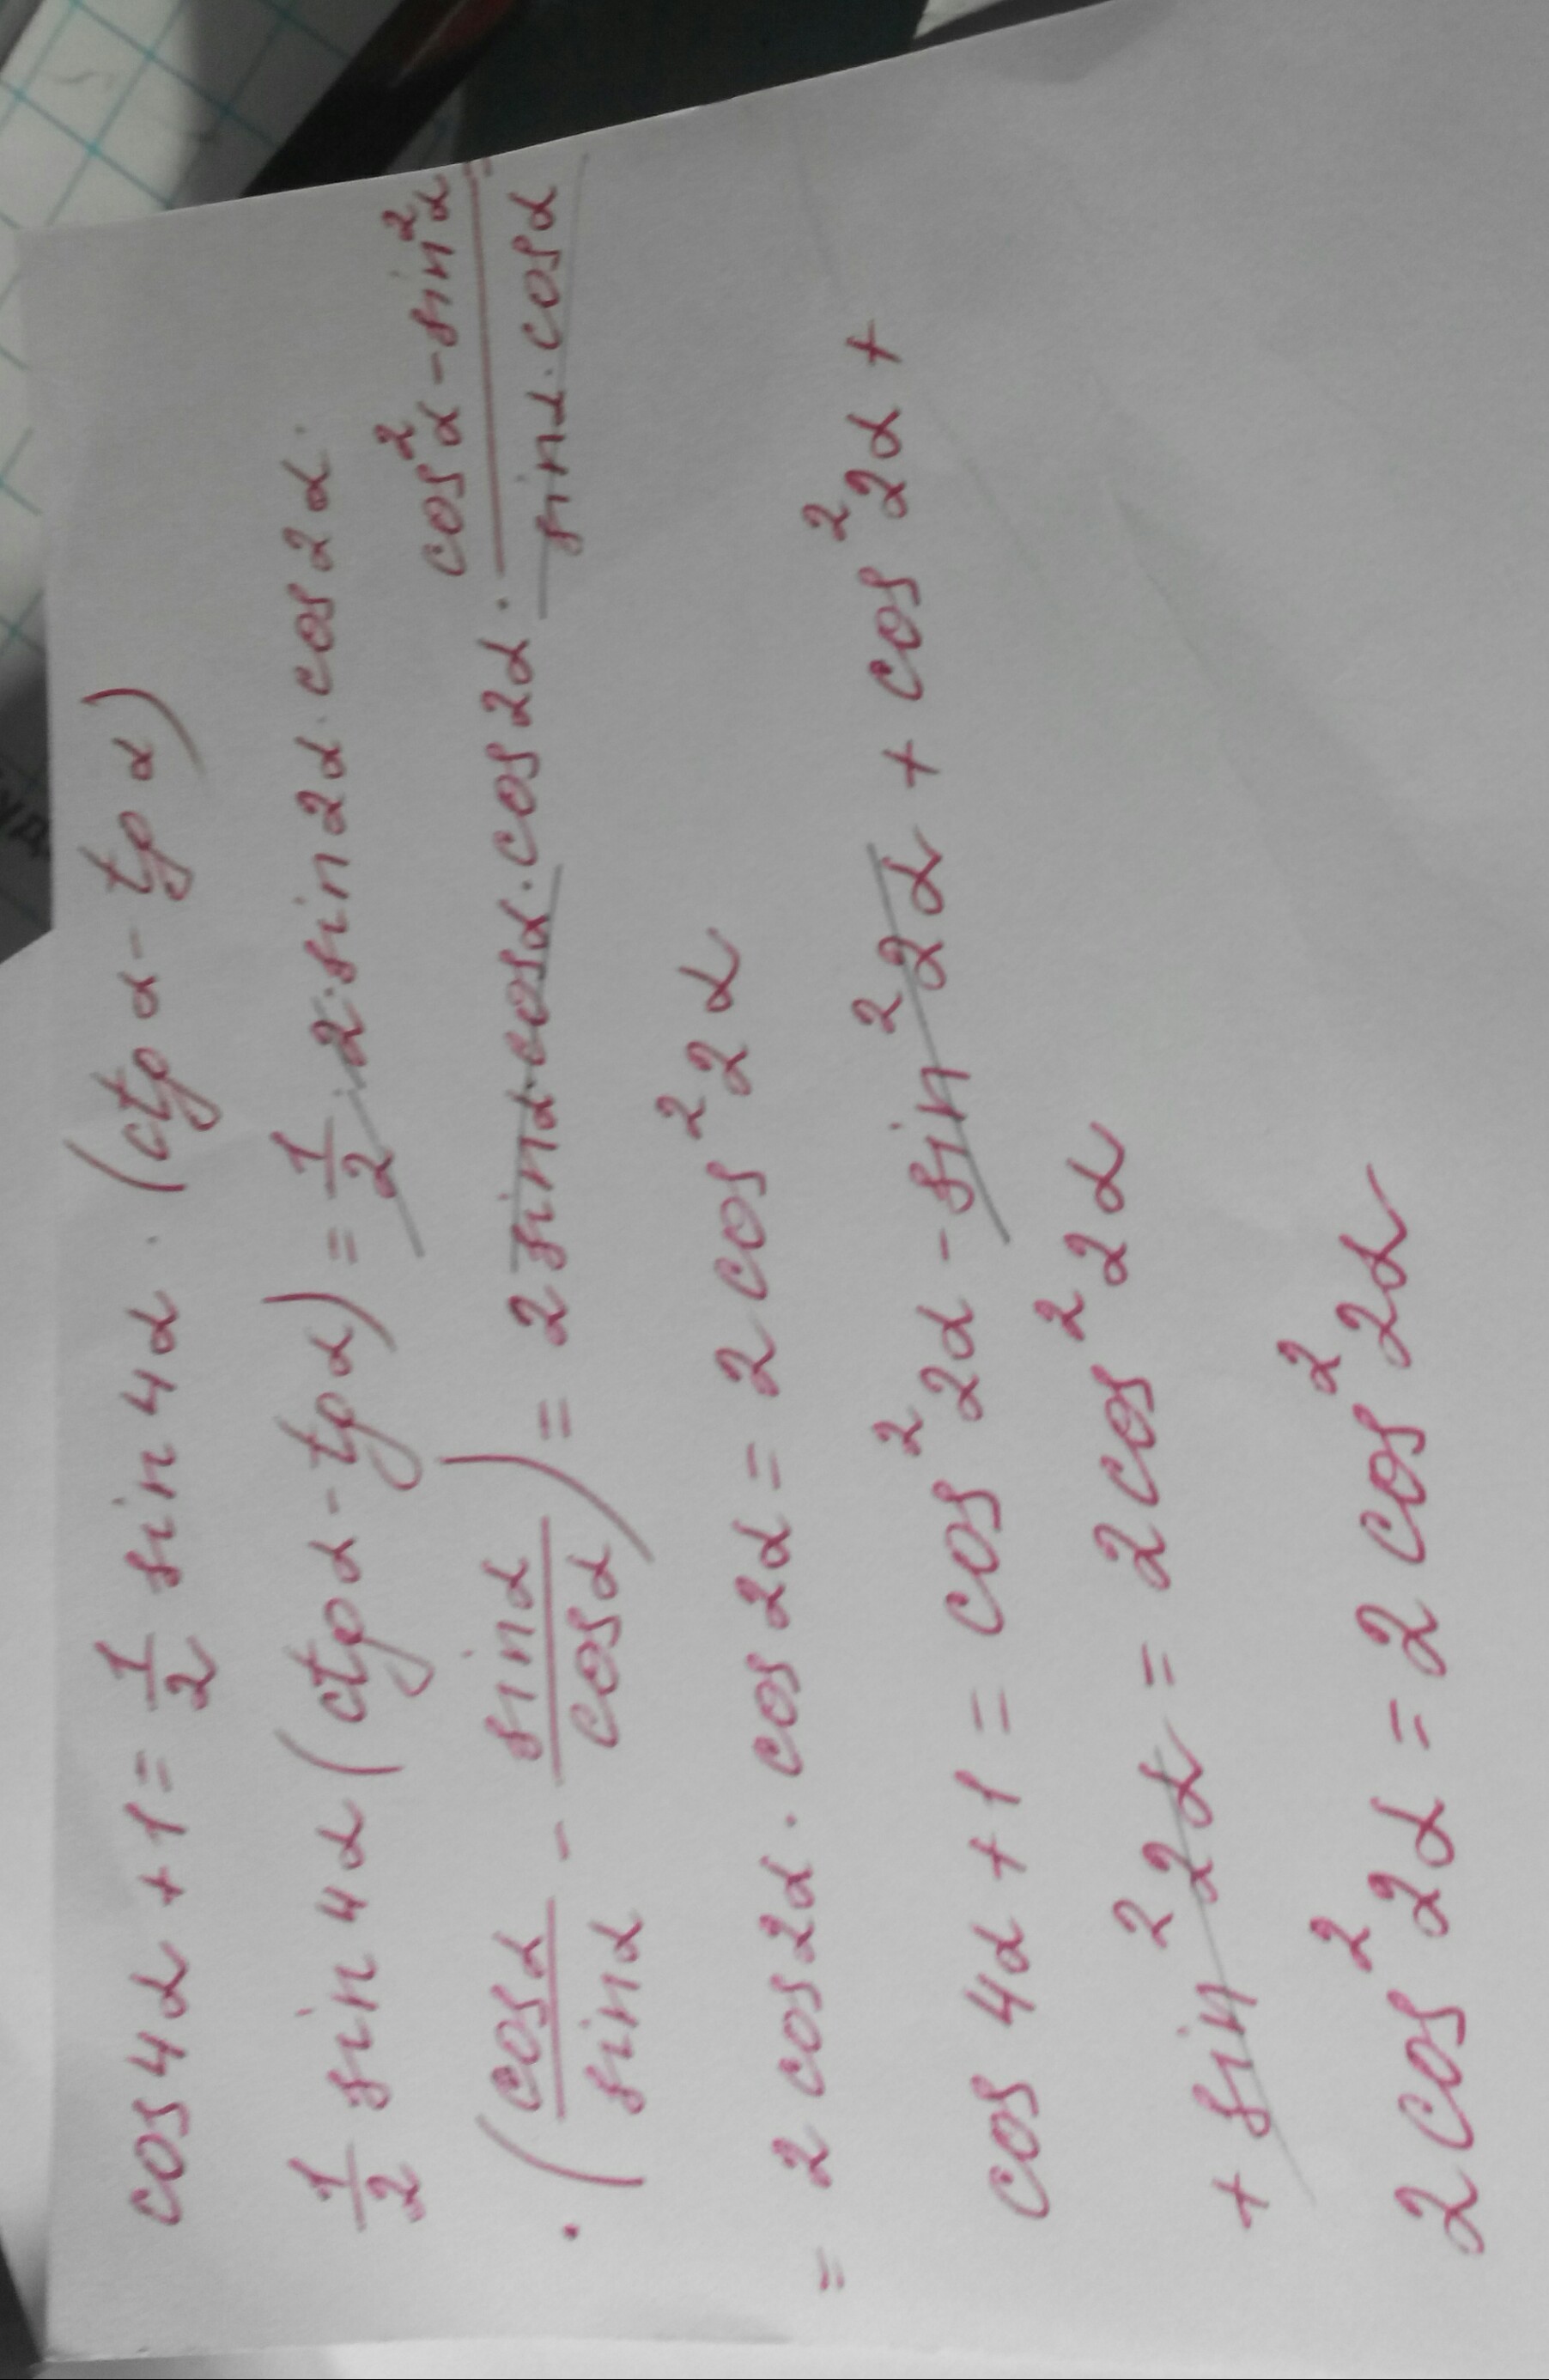 cos 4α + 1 = 1/2 sin 4α · (ctg α - tg α)
1/2 sin 4α (ctg α - tg α) = 1/2 · 2 · sin 2α · cos 2α ·
· (cos α / sin α - sin α / cos α) = 2 sin α · cos α · cos 2α · (cos² α - sin² α) / (sin α · cos α) =
= 2 cos 2α · cos 2α = 2 cos² 2α
cos 4α + 1 = cos² 2α - sin² 2α + cos² 2α +
+ sin² 2α = 2 cos² 2α
2 cos² 2α = 2 cos² 2α